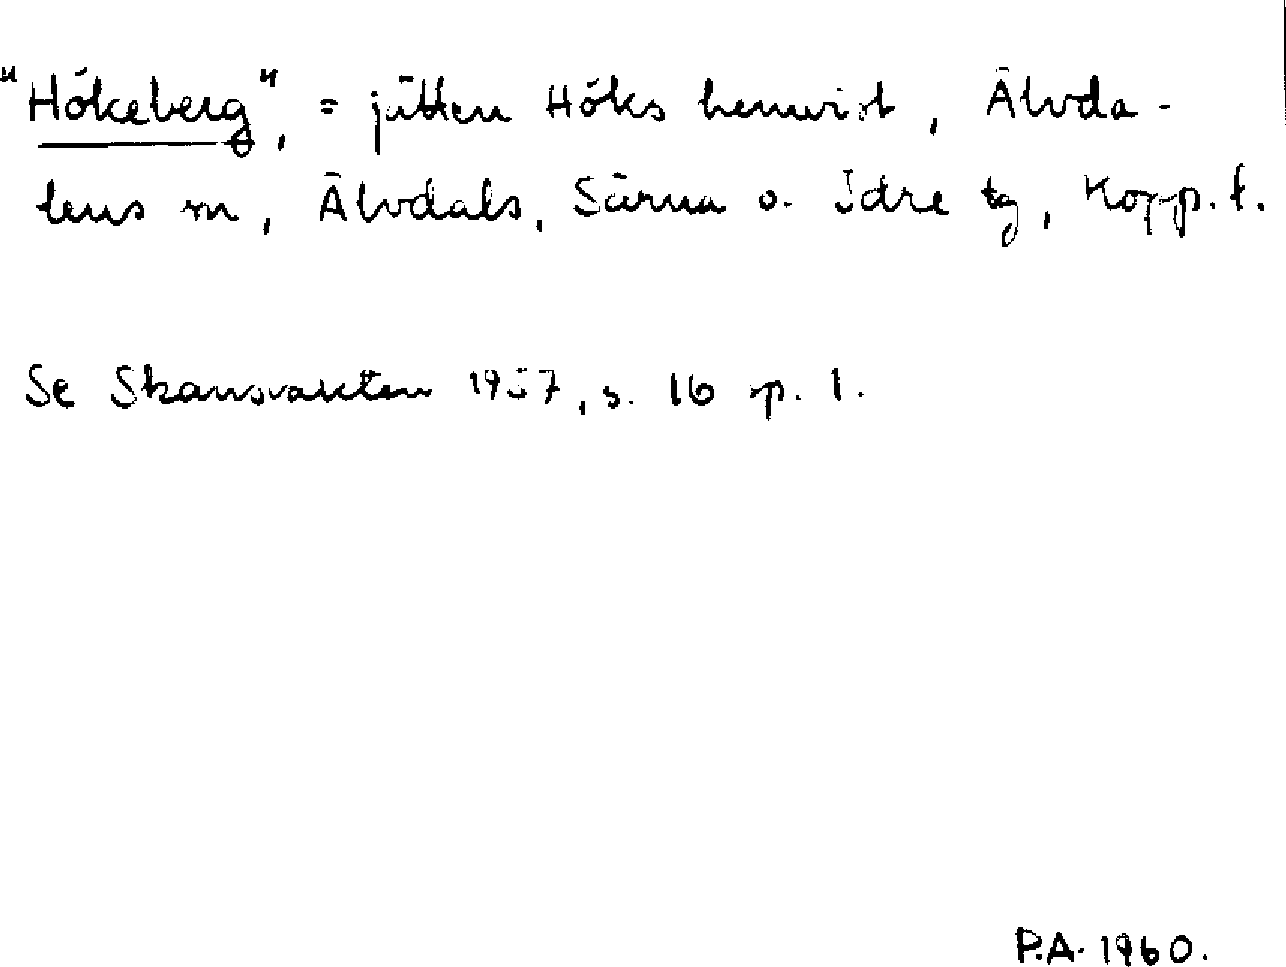 "Hökeberg", = jätten Höks hemvist, Älvda-
lens m, Älvdals, Särna o. Idre tg, Kopp. l.
Se Skansvakten 1957, s. 16 sp. 1.
P.A. 1960.